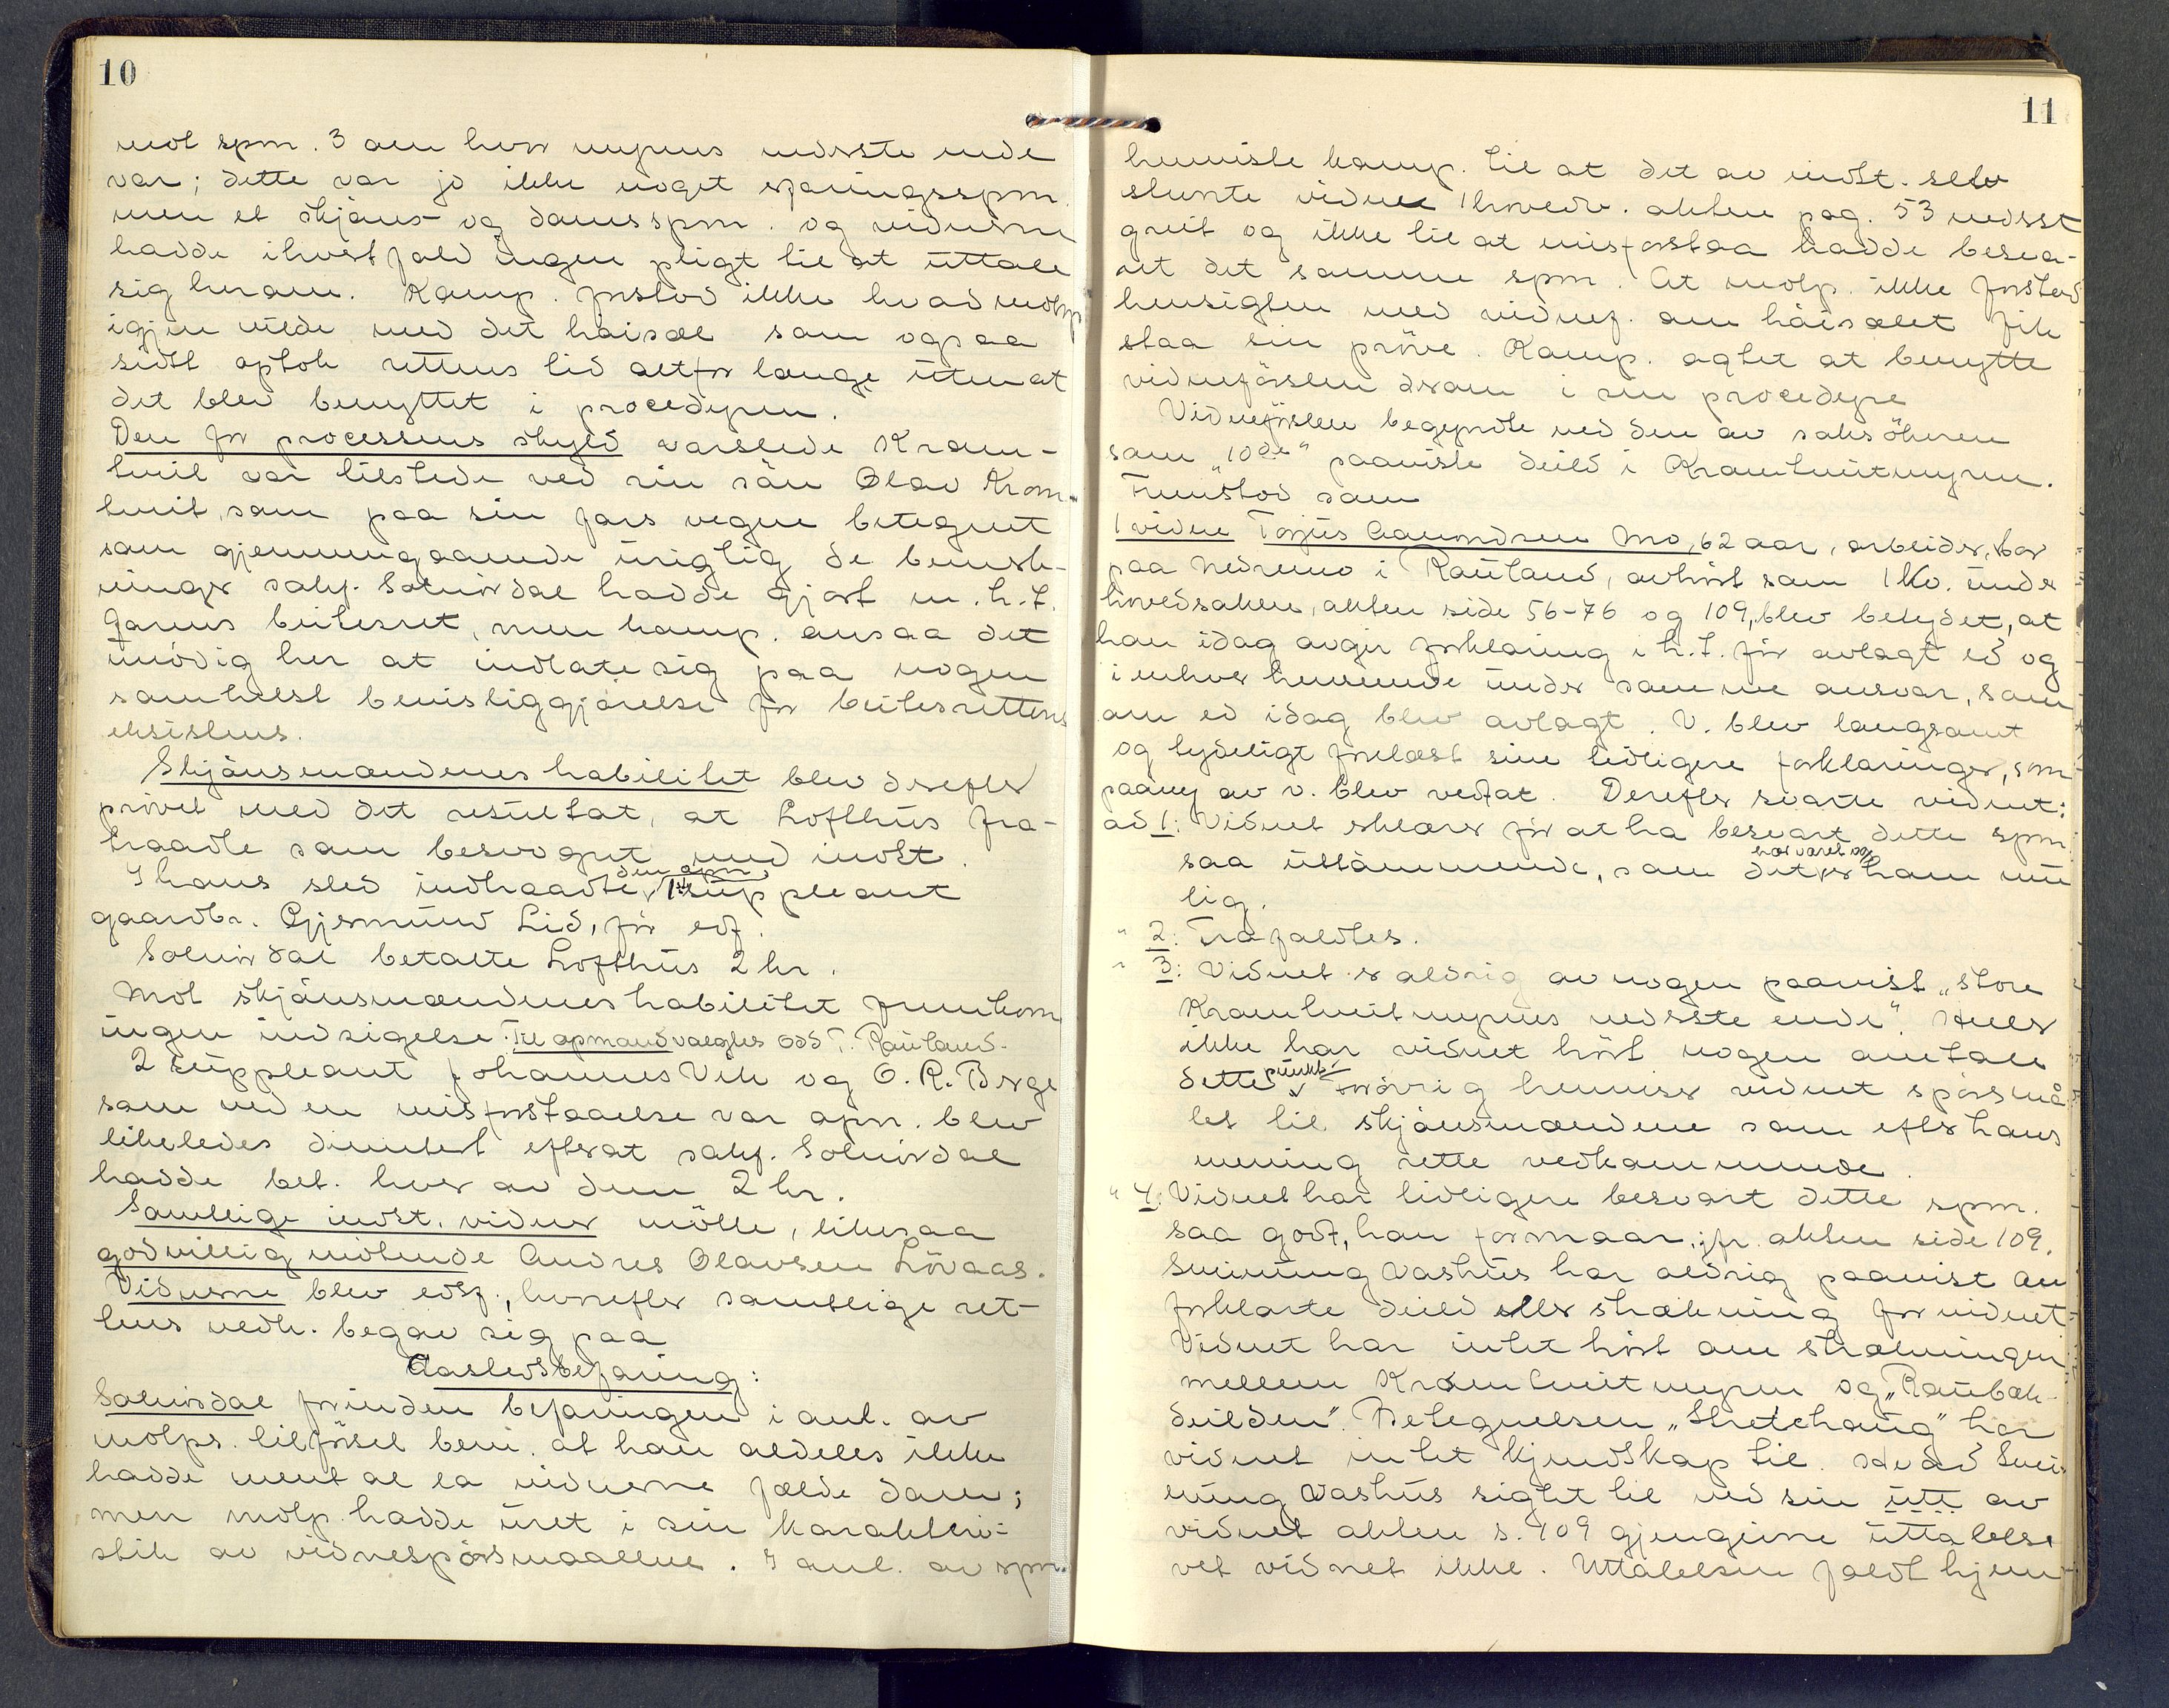 10
mot spm. 3 om hvor myrens nederste ende
var; dette var jo ikke noget erfaringsspm.
men et skjöns- og domsspm. og vidnerne
hadde ihvertfald ingen pligt til at uttale
sig herom. Komp. forstod ikke hvad motp
igjen vilde med det hoisæl som ogsaa
sidst optok rettens tid altfor længe uten at
det blev benyttet i proceduren.
Den for processens skyld varslede Krom-
tveit var tilstede ved sin sön Olav Krom-
tveit, som paa sin fars vegne betegnet
som gjennemgaaende urigtig de bemerk-
ninger sakf. Solnördal hadde gjort m. h. t.
garens beitesret, men komp. ansaa det
unödig her at indlate sig paa nogen
somhelst bevisliggjörelse for beitesrettens
eksistens.
Skjönsmændenes habilitet blev derefter
prövet med det resultat, at Lofthus fra-
traadte som besvogret med indst.
I hans sted indtraadte den opn. 1ste suppleant
gaardbr. Gjermund Lid, för edf.
Solnördal betalte Lofthus 2 kr.
Mot skjönsmændenes habilitet fremkom
ingen indsigelse. Til opmand valgtes Odd T. Rauland.
2 suppleant Johannes Vik og O. R. Berge
som ved en misforstaaelse var opn. blev
likeledes dimitert efterat sakf. Solnördal
hadde bet. hver av dem 2 kr.
Samtlige indst. vidner mötte, likesaa
godvillig mötende Andres Olavsen Lövaas.
Vidnerne blev edsf., hvorefter samtlige ret-
tens vedk. begav sig paa
Aastedsbefaring:
Solnördal forinden befaringen i anl. av
motps. tilförsel bem. at han aldeles ikke
hadde ment at la vidnerne fælde dom;
men motp. hadde uret i sin karakteri-
stik av vidnespörsmaallene. I anl. av spm.
11
henviste komp. til at det av indst. selv
stevnte vidne i hovedv. akten pag. 53 nedsst
greit og ikke til at misforstaa hadde besva-
ret det samme spm. At motp. ikke forstod
hensigten med vidnef. om höisælet fik
staa sin pröve. Komp. agtet at benytte
vidneförslen derom i sin procedyre
Vidneförslen begyndte ved den av saksökeren
som "10de" paaviste deild i Kromtveitmyren.
Fremstod som
1 vidne Torjus Aamundsen Mo, 62 aar, arbeider, bor
paa Nedremo i Rauland, avhört som 1 kv. under
hovedsaken, akten side 56-76 og 109, blev betydet, at
han idag avgir forklaring i h. t. för avlagt ed og
i enhver henseende under samme ansvar, som
om ed idag blev avlagt. V. blev langsomt
og tydeligt forelæst sine tidligere forklaringer, som
paany av v. blev vedtat. Derefter svarte vidnet:
ad 1: Vidnet erklærer för at ha besvart dette spm
saa uttömmende, som det har været for ham mu
lig.
" 2: Frafaldtes.
" 3: Vidnet er aldrig av nogen paavist "store
Kromtveitmyrens nederste ende". Heller
ikke har vidnet hört nogen omtale
dette punkt. Forövrig henviser vidnet spörsmå-
let til skjönsmændene som efter hans
mening rette vedkommende.
" 4: Vidnet har tidligere besvart dette spm.
saa godt, han formaar, jfr. akten side 109.
Sveinung Vashus har aldrig paavist en
forklarte deild eller strækning for vidnet
Vidnet har intet hört om strækningen
mellem Kromtveitmyren og "Raubæk-
deilden". Betegnelsen "Stretehaug" har
vidnet intet kjendskap til. Hvad Svei-
nung Vashus sigtet til ved sin utt av
vidnet akten s. 109 gjengivne uttalelse
vet vidnet ikke. Uttalelsen faldt hjem